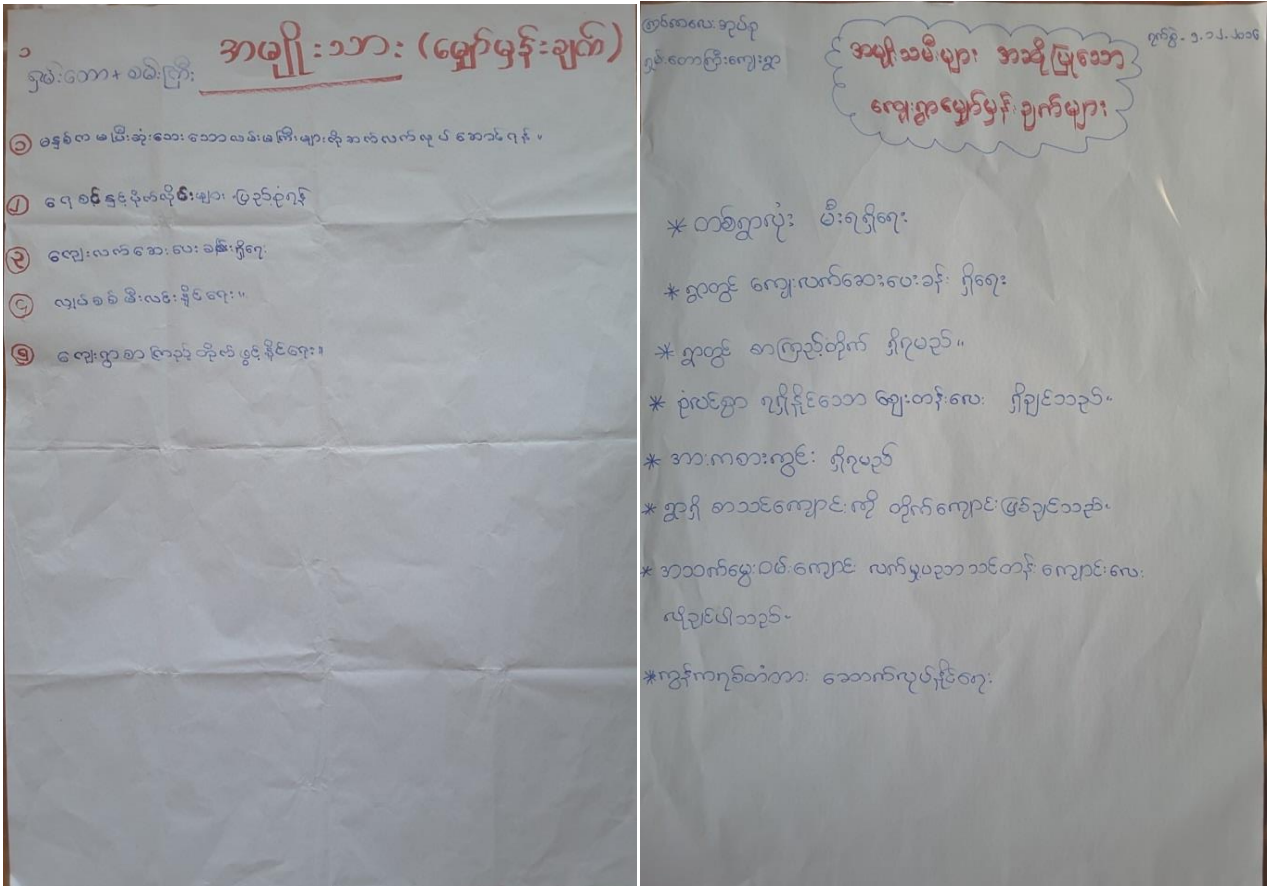 ၁
ရှမ်းတော + စမ်းကြီး
အမျိုးသား (မျှော်မှန်းချက်)
၁ မနှစ်က မပြီးဆုံးသေးသောလမ်းမကြီးများကိုဆက်လက်လုပ်ဆောင်ရန်။
၂ ရေစင်နှင့်ပိုက်လိုင်းများ ပြည့်စုံရန်
၃ ကျေးလက်ဆေးပေးခန်းရှိရေး
၄ လျှပ်စစ်မီးလင်းနိုင်ရေး။
၅ ကျေးရွာစာကြည့်တိုက်ဖွင့်နိုင်ရေး။
အုပ်စု
ရှမ်းတောကြီးကျေးရွာ
အမျိုးသမီးများ အဆိုပြုသော
ကျေးရွာမျှော်မှန်းချက်များ
ရက်စွဲ - ၅.၁၂.၂၀၁၆
* တစ်ရွာလုံး မီးရရှိရေး
* ရွာတွင် ကျေးလက်ဆေးပေးခန်း ရှိရေး
* ရွာတွင် စာကြည့်တိုက် ရှိရမည်။
* စုံလင်စွာ ရရှိနိုင်သော ဈေးတန်းလေး ရှိချင်သည်။
* အားကစားကွင်း ရှိရမည်
* ရွာရှိ စာသင်ကျောင်းကို တိုက်ကျောင်းဖြစ်ချင်သည်။
* အသက်မွေးဝမ်းကျောင်း လက်မှုပညာသင်တန်းကျောင်းလေး
လိုချင်ပါသည်။
* ကွန်ကရစ်တံတား ဆောက်လုပ်နိုင်ရေး